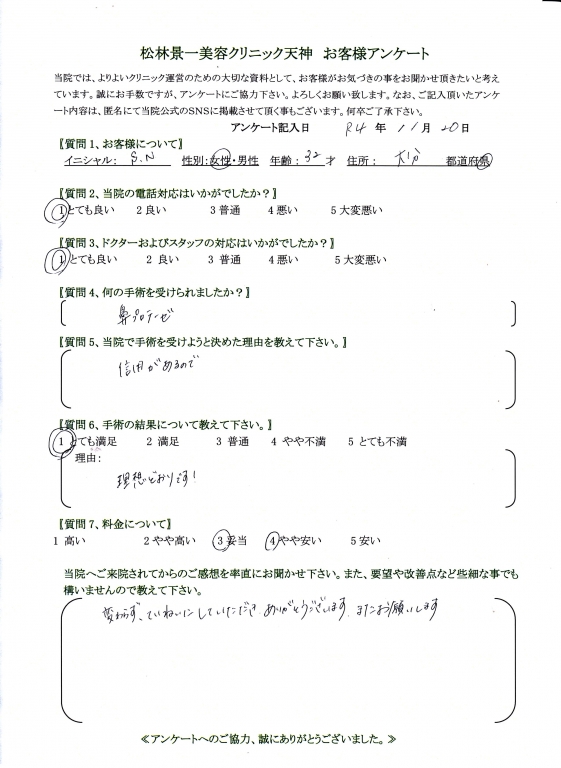 松林景一美容クリニック天神 お客様アンケート
当院では、よりよいクリニック運営のための大切な資料として、お客様がお気づきの事をお聞かせ頂きたいと考え
ています。誠にお手数ですが、アンケートにご協力下さい。よろしくお願い致します。なお、ご記入頂いたアンケ
ート内容は、匿名にて当院公式のSNSに掲載させて頂く事もございます。何卒ご了承下さい。
アンケート記入日 R4 年 11月 20日
【質問1、お客様について】
イニシャル: S.N 性別:女性・男性 年齢: 32才 住所: 大分 都道府県
【質問2、当院の電話対応はいかがでしたか?】
1とても良い 2良い 3普通 4悪い 5大変悪い
【質問3、ドクターおよびスタッフの対応はいかがでしたか?】
1とても良い 2 良い 3 普通 4悪い 5大変悪い
【質問4、何の手術を受けられましたか?】
鼻プロテーゼ
【質問5、当院で手術を受けようと決めた理由を教えて下さい。】
信用があるので
【質問6、手術の結果について教えて下さい。】
1とても満足 2 満足 3 普通 4 やや不満 5 とても不満
理由:
理想どおりです!
【質問7、料金について】
1 高い 2やや高い 3妥当 4やや安い 5安い
当院へご来院されてからのご感想を率直にお聞かせ下さい。また、要望や改善点など些細な事でも
構いませんので教えて下さい。
変わらず、ていねいにしていただき ありがとうございます。またお願いします
≪アンケートへのご協力、誠にありがとうございました。≫